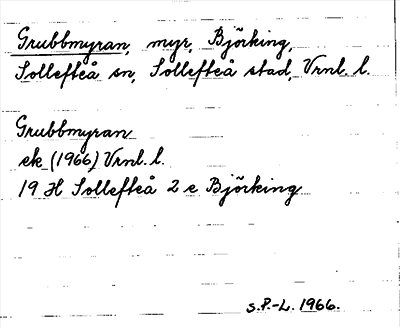 Grubbmyran, myr, Björking,
Sollefteå sn, Sollefteå stad, Vrnl. l.
Grubbmyran
ek (1966) Vrnl. l.
19 H Sollefteå 2 e Björking
S.P.-L. 1966.